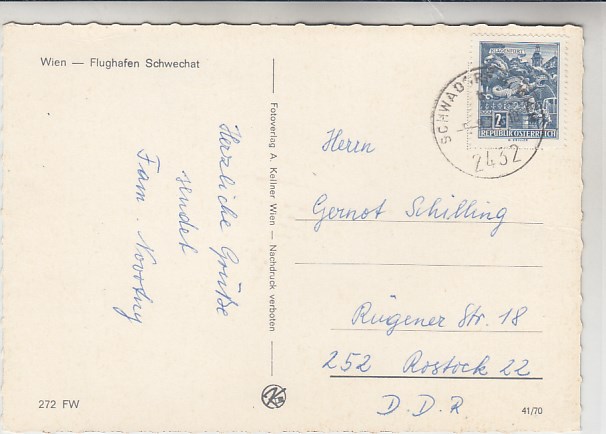 Wien — Flughafen Schwechat
Herzliche Grüße
sendet
Fam. Novotny
Fotoverlag A. Kellner Wien — Nachdruck verboten
KLAGENFURT
2S
REPUBLIK ÖSTERREICH
SCHWADORF
2432
Herrn
Gernot Schilling
Rügener Str. 18
252 Rostock 22
D.D.R
272 FW
41/70